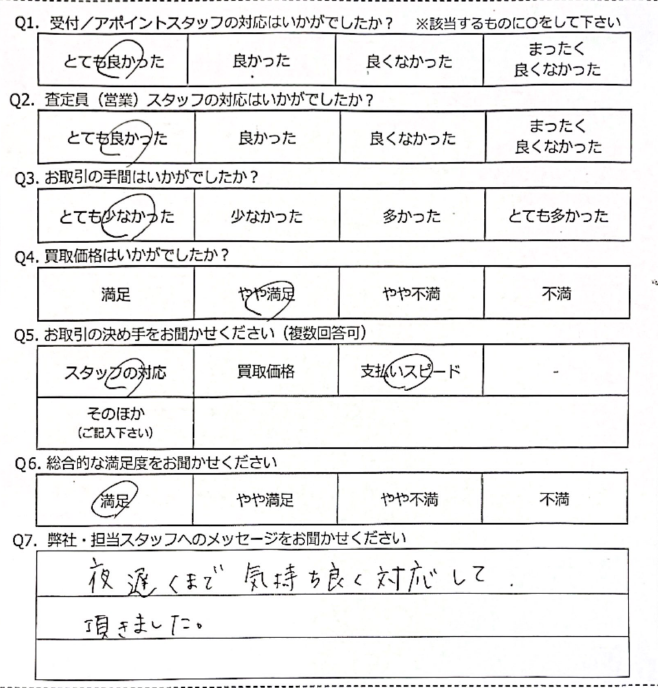 Q1. 受付／アポイントスタッフの対応はいかがでしたか？ ※該当するものに○をして下さい
とても良かった 良かった 良くなかった まったく良くなかった
Q2. 査定員（営業）スタッフの対応はいかがでしたか？
とても良かった 良かった 良くなかった まったく良くなかった
Q3. お取引の手間はいかがでしたか？
とても少なかった 少なかった 多かった とても多かった
Q4. 買取価格はいかがでしたか？
満足 やや満足 やや不満 不満
Q5. お取引の決め手をお聞かせください（複数回答可）
スタッフの対応 買取価格 支払いスピード -
そのほか
（ご記入下さい）
Q6. 総合的な満足度をお聞かせください
満足 やや満足 やや不満 不満
Q7. 弊社・担当スタッフへのメッセージをお聞かせください
夜遅くまで気持ち良く対応して
頂きました。